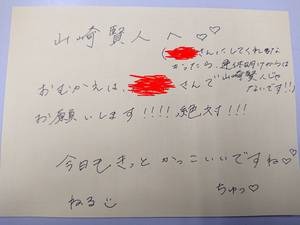 山崎賢人へ♡♡
(さんにしてくれるな
かったら、連休明けからは
おむかえは、さんで山崎賢人じゃ
ないです!!)
お願いします!!!!絶対!!
今日もきっとかっこいいですね♡
ねる ちゅっ♡